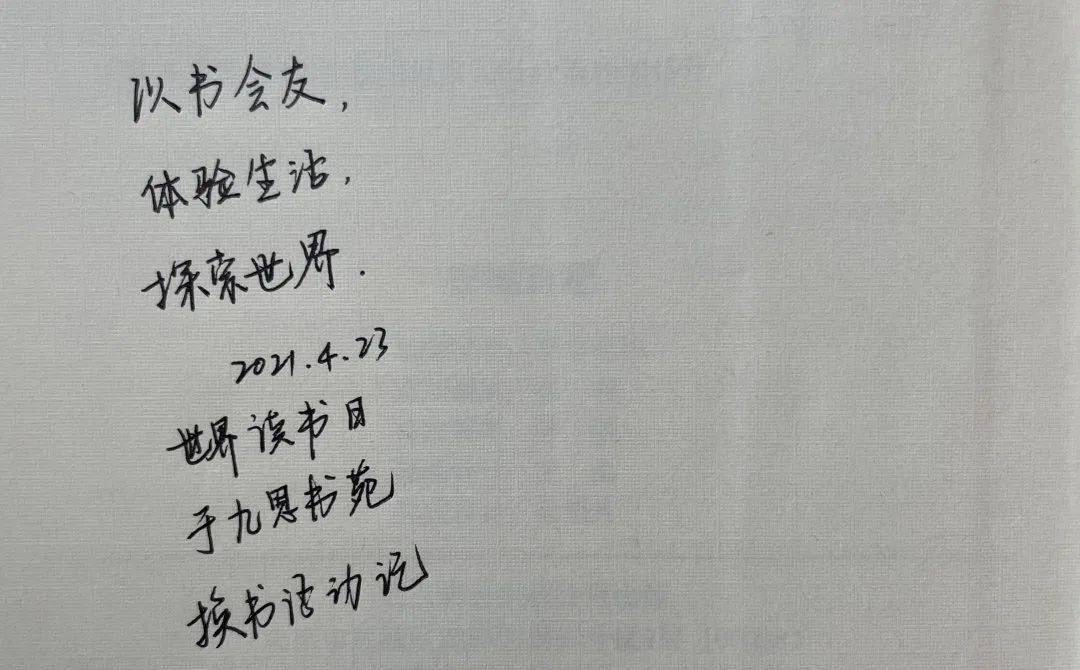 以书会友，
体验生活，
探索世界.
2021.4.23
世界读书日
于九思书苑
换书活动记